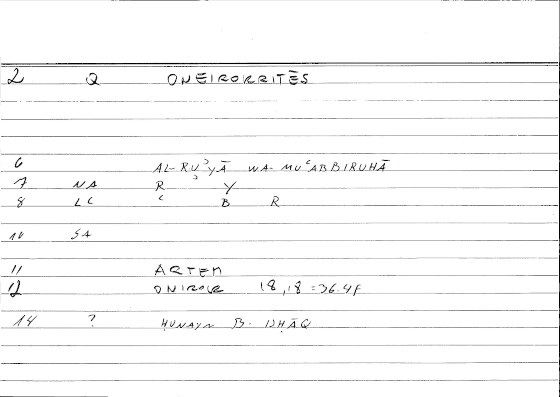 2 Q ONEIROKRITĒS
6 AL-RUʾYĀ WA-MUʿABBIRUHĀ
7 NA R ʾ Y
8 LC ʿ B R
10 SA
11 ARTEM
12 ONIROCR 18,18 = 36.4F
14 ? ḤUNAYN B. ISḤĀQ